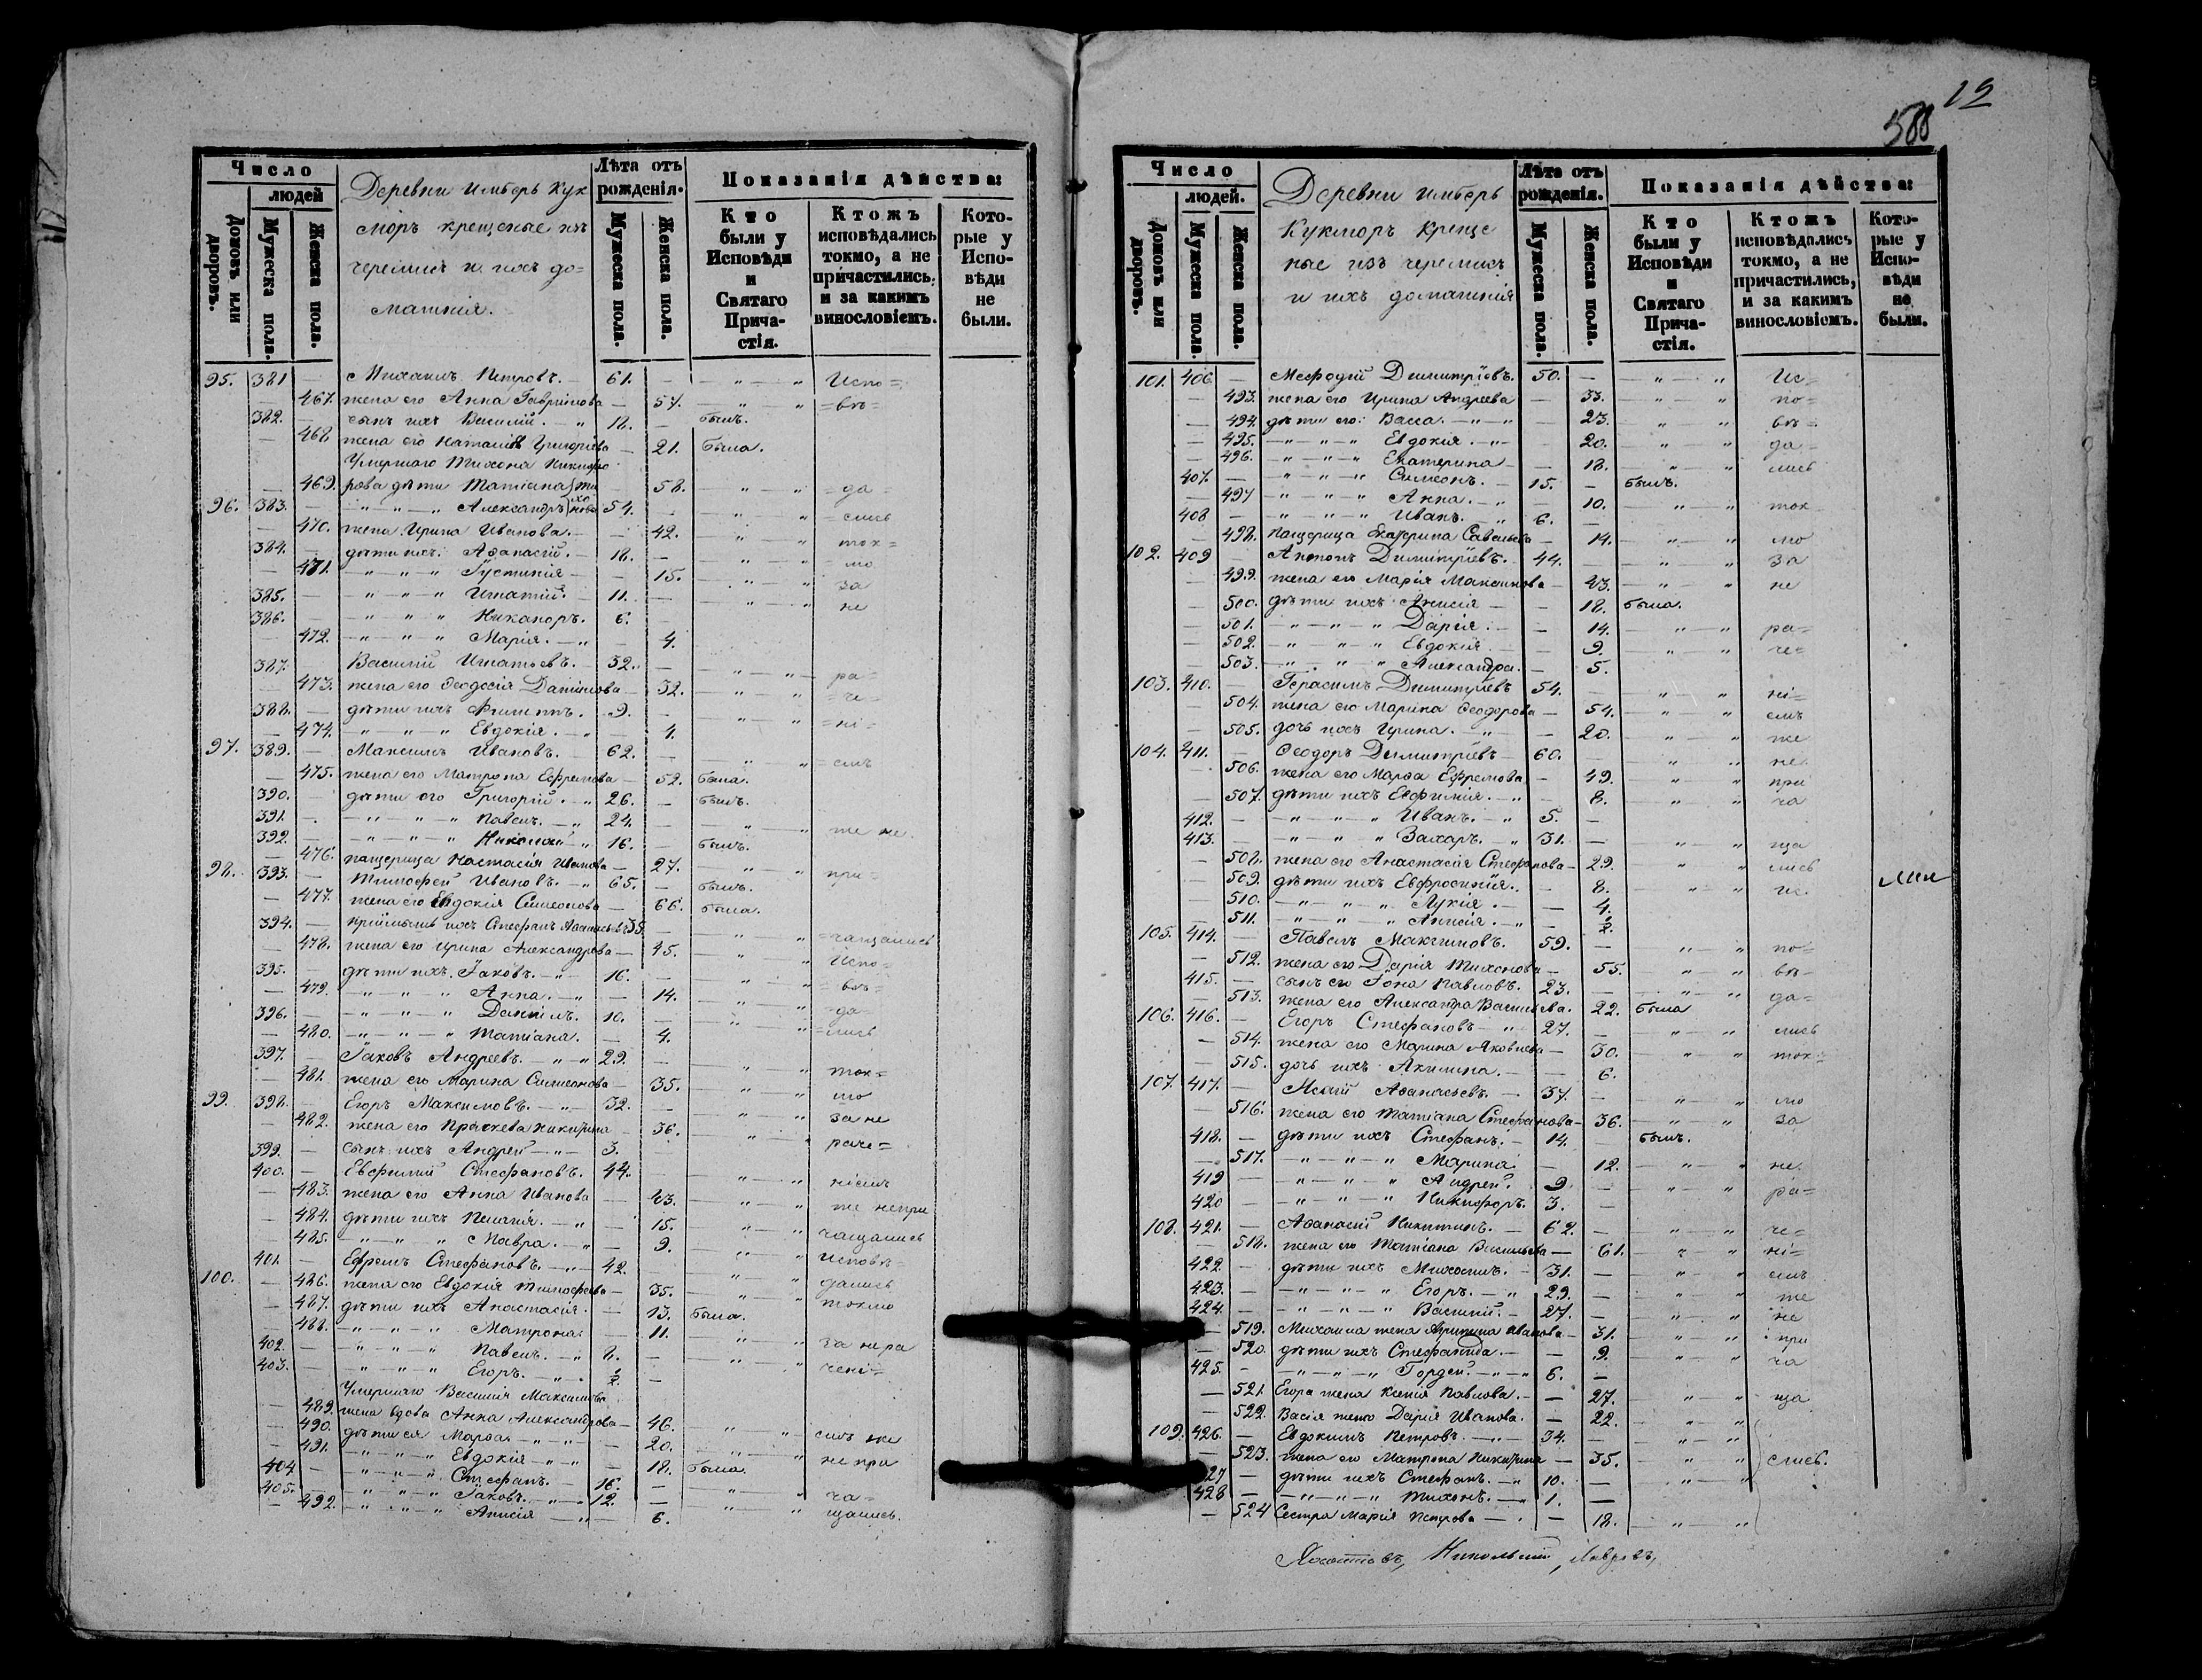 Число
людей
Домовъ или дворовъ.
Мужеска пола.
Женска пола.
Деревни Имберь Кук
моръ крещеные изъ
черемисъ и ихъ до=
машнія.
Лѣта отъ рожденія.
Мужеска пола.
Женска пола.
Показанія дѣйства:
Кто были у Исповѣди и Святаго Прича-стія.
Ктожъ исповѣдались токмо, а не причастились, и за какимъ винословіемъ.
Кото-рые у Испо-вѣди не были.
95. 381 — Михаилъ Петровъ. — 61. — — „ — „ Испо=
— 467. жена его Анна Гаврилова — 57. — „ — „ =вѣ=
382. — сынъ ихъ Василій. — „ 18. — былъ.
— 468 жена его Наталія Григорьева — 21. была.
Умершаго Тихона Никифо
— 469. рова дѣти Татіана — 58. „ — „ =да=
96. 383. — „ — „ — „ Александръ 54. — — „ — „ =лись
— 470. жена Ирина Иванова. — — 42. — „ — „ ток=
384. — дѣти ихъ: Аѳанасій. — 18. — — „ — „ =мо
— 471. — „ — „ — „ Іустинія — — 15. — „ — „ за
385. — — „ — „ — „ Игнатій. — 11. — — „ — „ не
386. — „ „ „ Никаноръ. 6. —
— 472. — „ „ „ Марія. — „ — 4.
387. — Василій Игнатьевъ. — 32. — — „ — „ ра=
— 473. жена его Ѳеодосія Данилова — 32. — „ „ =че=
388. — дѣти ихъ Филиппъ. — 9. — — „ — „ =ні=
— 474. „ „ „ Евдокія. — „ — 4.
97. 389. — Максимъ Ивановъ. — 62. — — „ „ =емъ
— 475. жена его Матрона Ефремова — 52. была.
390. — дѣти его Григорій. — „ 26. — былъ.
391. — — „ — „ — „ Павелъ. — „ 24. — — „ — „ же не.
392. — — „ — „ — „ Николай — „ 16. — былъ.
— 476. пащерица Настасія Иванова — 27. — „ — „ при=
98. 393. — Тимоѳей Ивановъ. — „ 65. — былъ.
— 477. жена его Евдокія Симеонова — 66. была.
394. — пріимышъ ихъ Стефанъ Аѳанасьевъ 35. — — „ „ =чащались
— 478. жена его Ирина Александрова — 45. — „ „ Испо=
395. — дѣти ихъ. Іаковъ. — „ — 16. — — „ „ =вѣ=
— 479. — „ „ „ Анна. — „ — 14. — „ „ =да=
396. — — „ „ „ Даніилъ. — 10. — — „ „ =лись
— 480. — „ — „ — „ Татіана. — — 4.
397. — Іаковъ Андреевъ. — „ — „ 29. — — „ „ ток=
— 481. жена его Марина Симеонова — 35. — „ „ мо
99. 398. — Егоръ Максимовъ. — „ — 32. — — „ „ за не
— 482. жена его — 36. — „ — „ раче=
399. — сынъ ихъ Андрей — „ — 3. —
400. — Евѳимій Стефановъ. — 44. — — „ „ ніемъ
— 483. жена его Анна Иванова — 43. — „ „ же непри
— 484. дѣти ихъ Пелагія. — „ — 15. — „ „ чащались
— 485. — „ — „ „ Мавра. — „ — 9. — „ „ исповѣ=
401. — Ефремъ Стефановъ. — „ — 42. — — „ „ дались
100. — 486. жена его Евдокія Тимоѳеева — 35. — „ „ токмо
— 487. дѣти ихъ Анастасія. — — 13. была.
— 488. — „ — „ — „ Матрона. — 11. — „ „ за нера
402. — — „ „ „ Павелъ. — „ 8. — — „ „ чені=
403. — — „ „ „ Егоръ. — „ ½ —
Умершаго Василія Максимова
— 489. жена вдова Анна Александрова — 46. — „ „ емъ же
— 490. дѣти ея Марѳа. — „ — „ — 20. — „ „ непри
— 491. — „ — „ „ Евдокія — „ — „ — 18. была.
404 — — „ — „ — „ Стефанъ. — 16. — — „ „ ча=
405. — — „ — „ — „ Іаковъ. — „ — „ 12. — — „ „ щались.
— 492. — „ — „ — „ Анисія — „ — 6.
19
588
Число
людей.
Домовъ или дворовъ.
Мужеска пола.
Женска пола.
Деревни Имберь
Кукморъ креще
ные изъ черемисъ
и ихъ домашнія
Лѣта отъ рожденія.
Мужеска пола.
Женска пола.
Показанія дѣйства:
Кто были у Исповѣди и Святаго Прича-стія.
Ктожъ исповѣдались токмо, а не причастились, и за какимъ винословіемъ.
Кото-рые у Испо-вѣди не были.
101. 406 — Меѳодій Димитріевъ. 50. — — „ — „ Ис=
— 493. жена его Ирина Андреева — 33. — „ — „ по=
— 494. дѣти его: Васса. — „ — „ — 23. — „ „ вѣ=
— 495. — „ — „ — „ Евдокія. — „ — — 20. — „ „ да=
— 496. — „ — „ — „ Екатерина — — 18. — „ — „ лись
407. — — „ — „ — „ Симеонъ. — 15. — былъ.
— 497 — „ — „ — „ Анна. — „ — 10. — „ — „ ток
408 — — „ — „ — „ Иванъ. — „ 6. —
— 498. пащерица Екатерина Савельева — 14. — „ — „ мо
102. 409 — Антонъ Димитріевъ. — 44. — — „ — „ за
— 499. жена его Марія Максимова — 43. — „ — „ не
— 500. дѣти ихъ Анисія — — 18. была.
— 501. — „ — „ — „ Дарія. — — 14. — „ — „ ра=
— 502. „ — „ — „ Евдокія. — 9. — „ „ че=
— 503. — „ — „ — „ Александра. — 5.
103. 410. — Герасимъ Димитріевъ 54. — — „ — „ ні=
— 504. жена его Марина Ѳеодорова — 54. — „ — „ емъ
— 505. дочь ихъ Ирина. — „ — 20. — „ „ же
104. 411. — Ѳеодоръ Димитріевъ — 60. — — „ „ не.
— 506. жена его Марѳа Ефремова — 49. — „ „ при
— 507. дѣти ихъ Евфимія. — „ — 8. — „ „ ча
412. — — „ — „ — „ Иванъ. — „ 5. —
413. — — „ — „ — „ Захаръ. — „ 31. — — „ „ ща
— 508. жена его Анастасія Стефанова — 29. „ „ лись
— 509. дѣти ихъ Евфросинія. — 8. — „ — „ ис.
— 510. — „ — „ — „ Лукія. — — 4.
— 511. — „ — „ — „ Анисія. — „ — ½.
105. 414. — Павелъ Максимовъ. 59. — — „ — „ по=
— 512. жена его Дарія Тихонова — 55. — „ — „ вѣ=
415. — сынъ его Іона Павловъ. 23. — — „ — „ да=
— 513. жена его Александра Васильева. 22. была
106. 416. — Егоръ Стефановъ — „ 27. — — „ — „ лись
— 514. жена его Марина Яковлева — 30. — „ — „ ток=
— 515. дочь ихъ Акилина. — — 6.
107. 417. — Аѳанасьевъ. — 37. — — „ — „ мо
— 516. жена его Татіана Стефанова — 36. — „ — „ за
418. — дѣти ихъ Стефанъ. — 14. — былъ.
— 517. — „ — „ — „ Марина. — 12. — „ — „ не.
419 — — „ — „ — „ Андрей. 9. — — „ „ ра=
420 — — „ — „ — „ Никифоръ. 3. —
108. 421. — Аѳанасій Никитинъ. — 62. — — „ — „ че=
— 518. жена его Татіана Васильева — 61. — „ — „ ні=
422. — дѣти ихъ Михаилъ. — 31. — — „ — „ емъ
423. — — „ — „ — „ Егоръ. — „ 29. — — „ — „ же
424. — — „ — „ — „ Василій. — 27. — — „ „ не
— 519. Михаила жена Агрипина Иванова — 31. — „ „ при
— 520. дѣти ихъ Стефанида. — — 9. — „ — „ ча
425. — — „ — „ — „ Гордей. — „ 6. —
— 521. Егора жена Ксенія Павлова. — — 27. — „ „ ща
— 522. Васія жена Дарія Иванова. — 22. — „ — „
109. 426. — Евдокимъ Петровъ. — „ — 34. — — „ — „
— 523. жена его Матрона Никитина — 35. — „ „ лись.
427 — дѣти ихъ Стефанъ. — „ 10. — — „ — „
428 — — „ — „ — „ Тихонъ. — „ 1. —
— 524 Сестра Марія Петрова — — 18. — „ — „